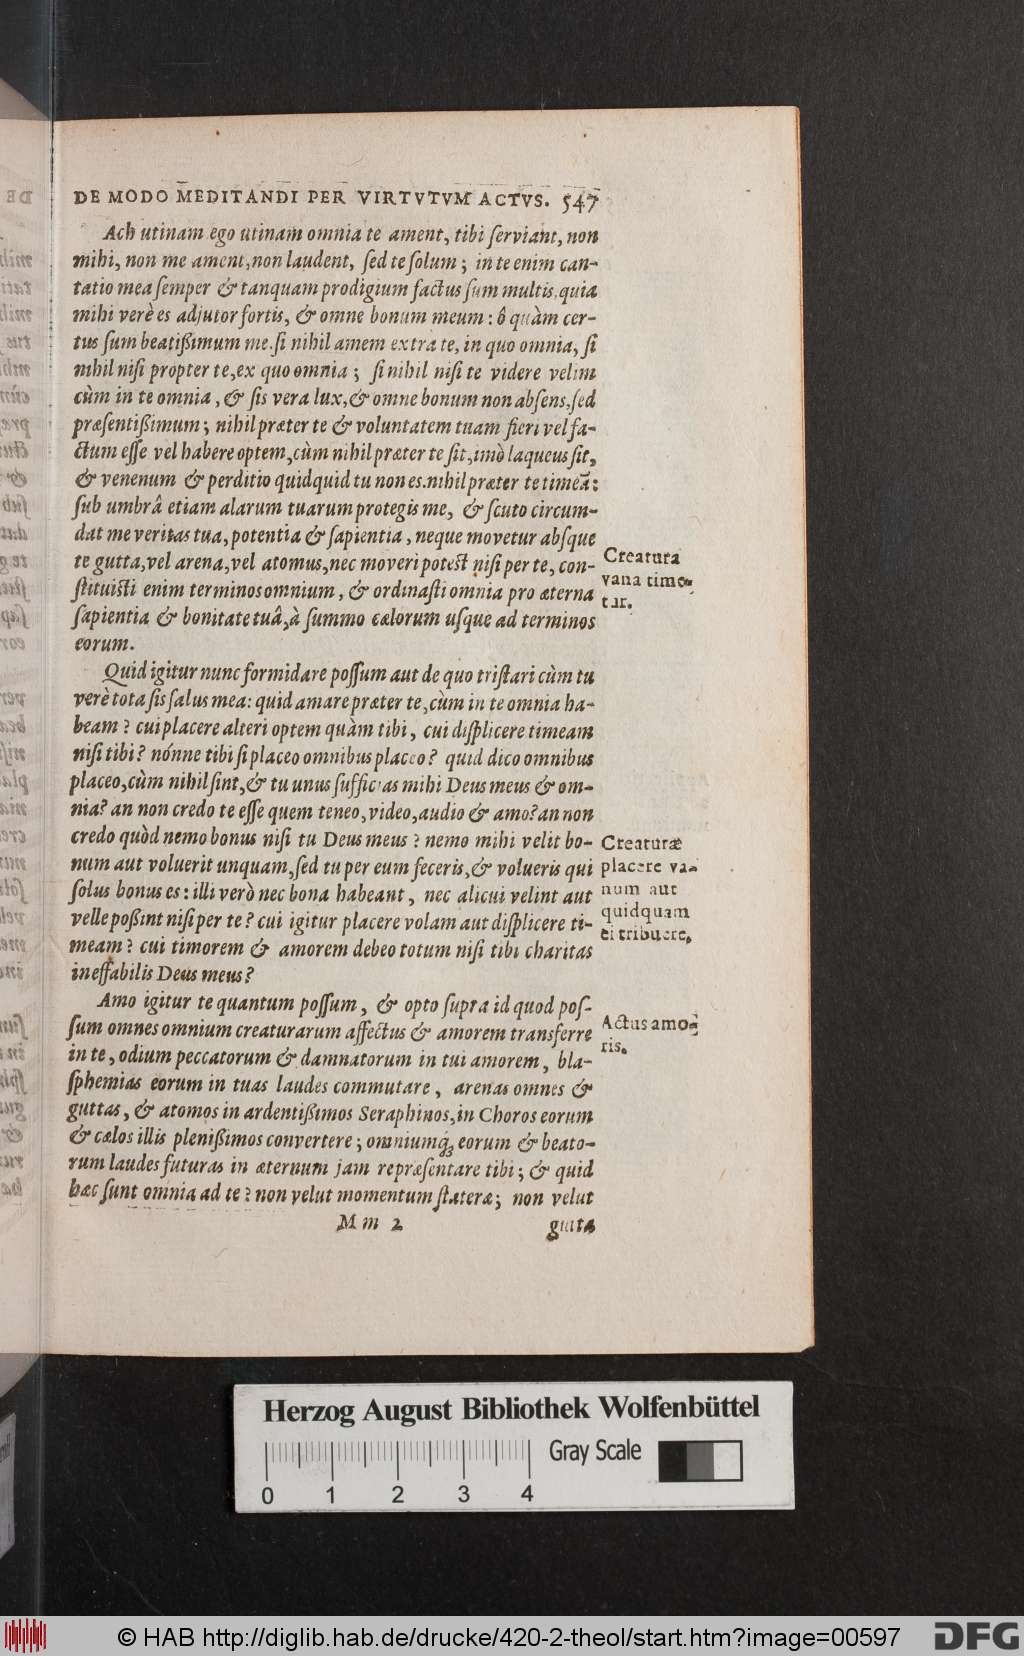 DE MODO MEDITANDI PER VIRTVTVM ACTVS. 547
Ach utinam ego utinam omnia te ament, tibi serviant, non
mihi, non me ament, non laudent, sed te solum; in te enim can-
tatio mea semper & tanquam prodigium factus sum multis, quia
mihi verè es adjutor fortis, & omne bonum meum: ô quàm cer-
tus sum beatißimum me, si nihil amem extra te, in quo omnia, si
nihil nisi propter te, ex quo omnia; si nihil nisi te videre velim
cùm in te omnia, & sis vera lux, & omne bonum non absens, sed
præsentißimum; nihil præter te & voluntatem tuam fieri vel fa-
ctum esse vel habere optem, cùm nihil præter te sit, imò laqueus sit,
& venenum & perditio quidquid tu non es. nihil præter te timeã:
sub umbrâ etiam alarum tuarum protegis me, & scuto circum-
dat me veritas tua, potentia & sapientia, neque movetur absque
te gutta, vel arena, vel atomus, nec moveri potest nisi per te, con-
stituisti enim terminos omnium, & ordinasti omnia pro æterna
sapientia & bonitate tuâ, à summo cælorum usque ad terminos
eorum.
Creatura
vana time-
tur.
Quid igitur nunc formidare possum aut de quo tristari cùm tu
verè tota sis salus mea: quid amare præter te, cùm in te omnia ha-
beam? cui placere alteri optem quàm tibi, cui displicere timeam
nisi tibi? nónne tibi si placeo omnibus placeo? quid dico omnibus
placeo, cùm nihil sint, & tu unus sufficias mihi Deus meus & om-
nia? an non credo te esse quem teneo, video, audio & amo? an non
credo quòd nemo bonus nisi tu Deus meus? nemo mihi velit bo-
num aut voluerit unquam, sed tu per eum feceris, & volueris qui
solus bonus es: illi verò nec bona habeant, nec alicui velint aut
velle poßint nisi per te? cui igitur placere volam aut displicere ti-
meam? cui timorem & amorem debeo totum nisi tibi charitas
ineffabilis Deus meus?
Creaturæ
placere va-
num aut
quidquam
ei tribuere.
Amo igitur te quantum possum, & opto supra id quod pos-
sum omnes omnium creaturarum affectus & amorem transferre
in te, odium peccatorum & damnatorum in tui amorem, bla-
sphemias eorum in tuas laudes commutare, arenas omnes &
guttas, & atomos in ardentißimos Seraphinos, in Choros eorum
& cælos illis plenißimos convertere; omniumq́; eorum & beato-
rum laudes futuras in æternum jam repræsentare tibi; & quid
hæc sunt omnia ad te? non velut momentum stateræ; non velut
Actus amo-
ris.
Mm 2 gutta
Herzog August Bibliothek Wolfenbüttel
Gray Scale
0 1 2 3 4
© HAB http://diglib.hab.de/drucke/420-2-theol/start.htm?image=00597
DFG